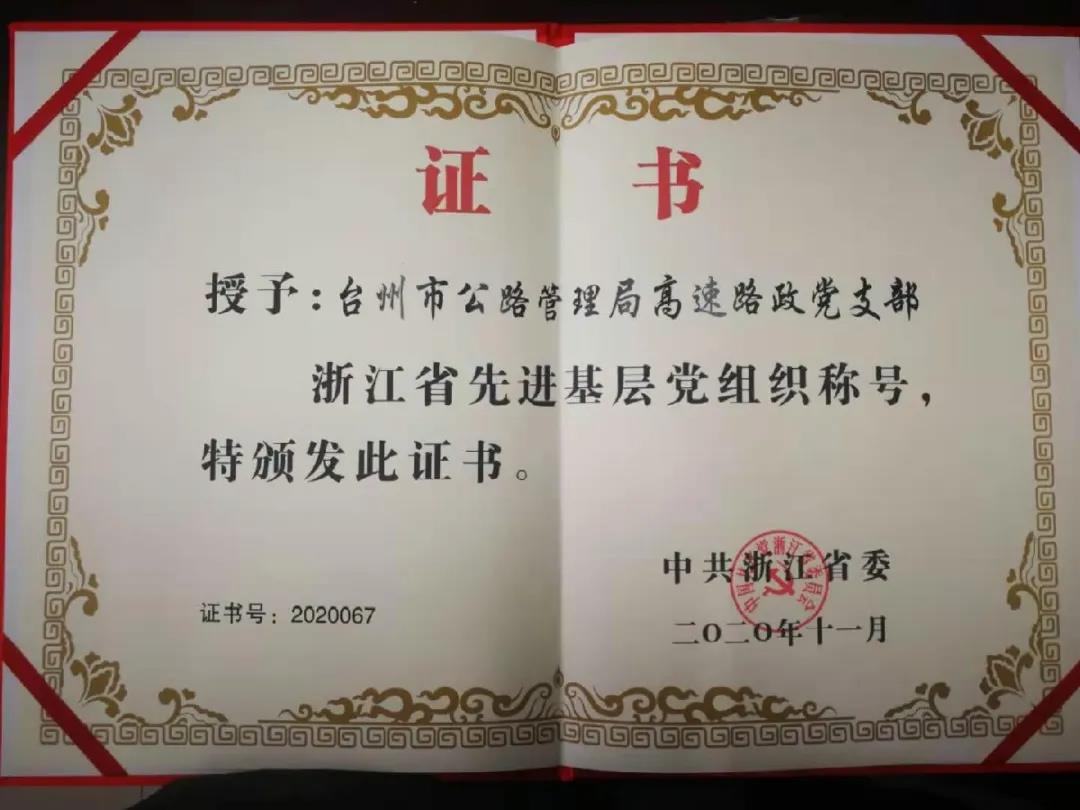 证书
授予：台州市公路管理局高速路政党支部
浙江省先进基层党组织称号，
特颁发此证书。
中国共产党浙江省委员会
中共浙江省委
证书号：2020067
二〇二〇年十一月